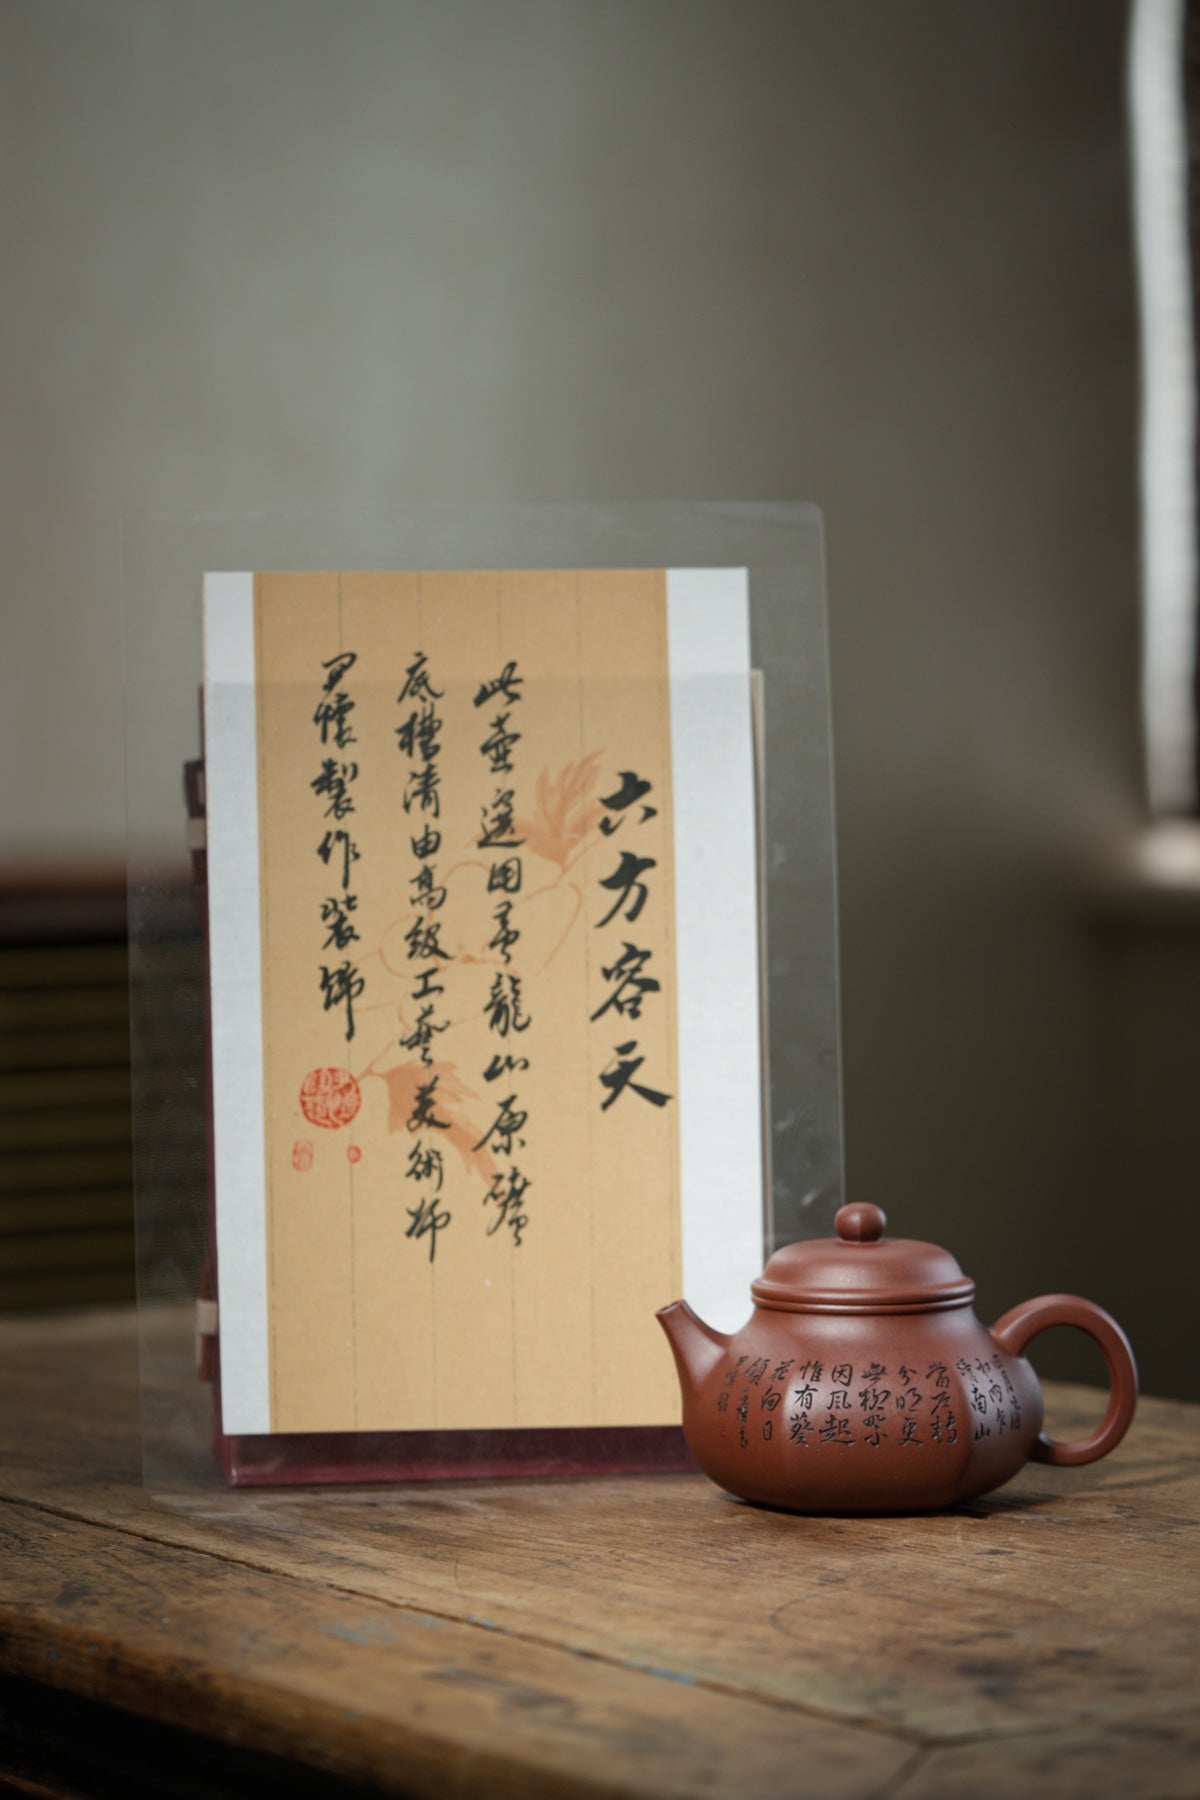 六方容天
此壶選用黃龍山原礦
底槽清由高级工藝美術師
尹懷製作装飾
四月清
和雨乍
晴南山
當户轉
分明更
無柳絮
因風起
惟有葵
花向日
傾